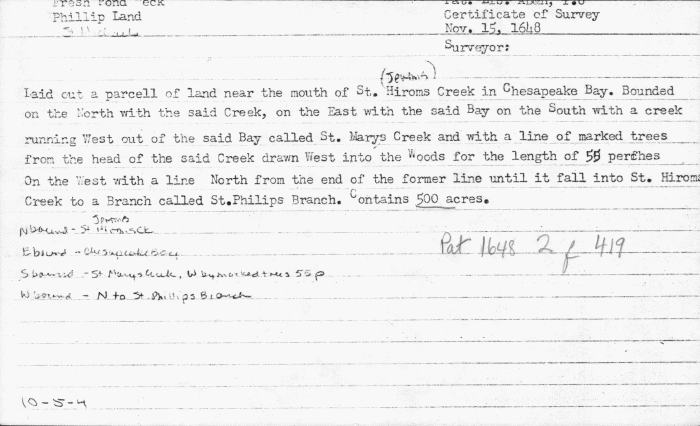 Fresh Pond Neck
Phillip Land
Certificate of Survey
Nov. 15, 1648
Surveyor:
(Jeroms)
Laid out a parcell of land near the mouth of St. Hiroms Creek in Chesapeake Bay. Bounded
on the North with the said Creek, on the East with the said Bay on the South with a creek
running West out of the said Bay called St. Marys Creek and with a line of marked trees
from the head of the said Creek drawn West into the Woods for the length of 55 perches
On the West with a line North from the end of the former line until it fall into St. Hiroms
Creek to a Branch called St.Philips Branch. Contains 500 acres.
Jeroms
N bound - St Hiroms Ck
E bound - Chesapeake Bay
S bound - St Marys Creek, W by marked trees 55 p
W bound - N to St. Phillips Branch
Pat 1648 2 f 419
10-5-4